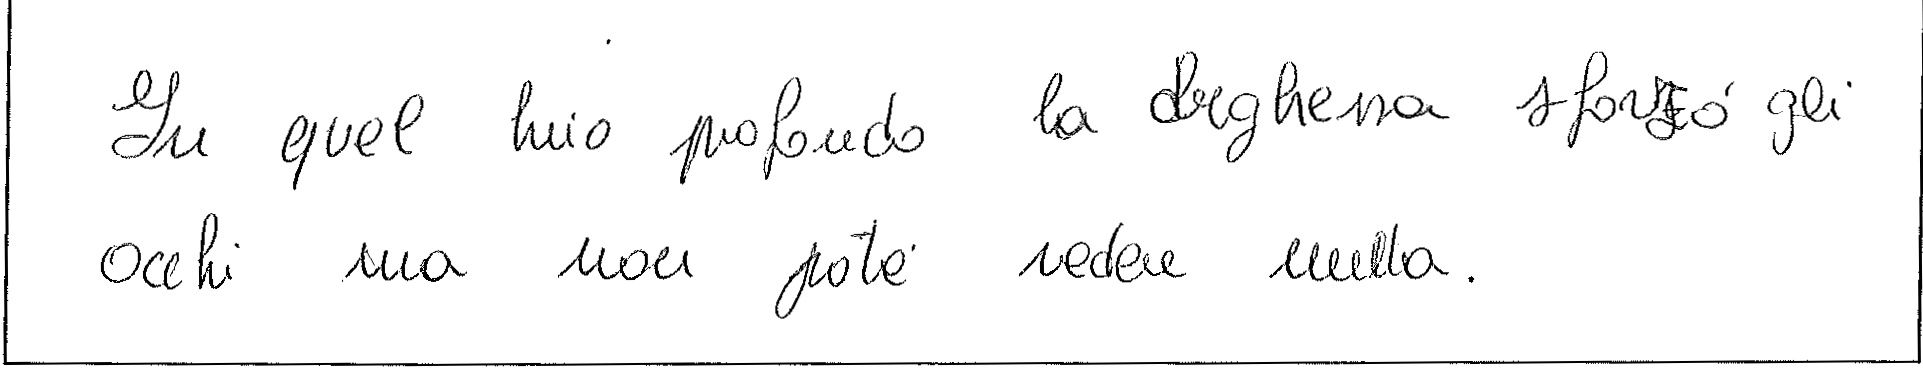 In quel buio profondo la streghessa sforzò gli
occhi ma non poté vedere nulla.